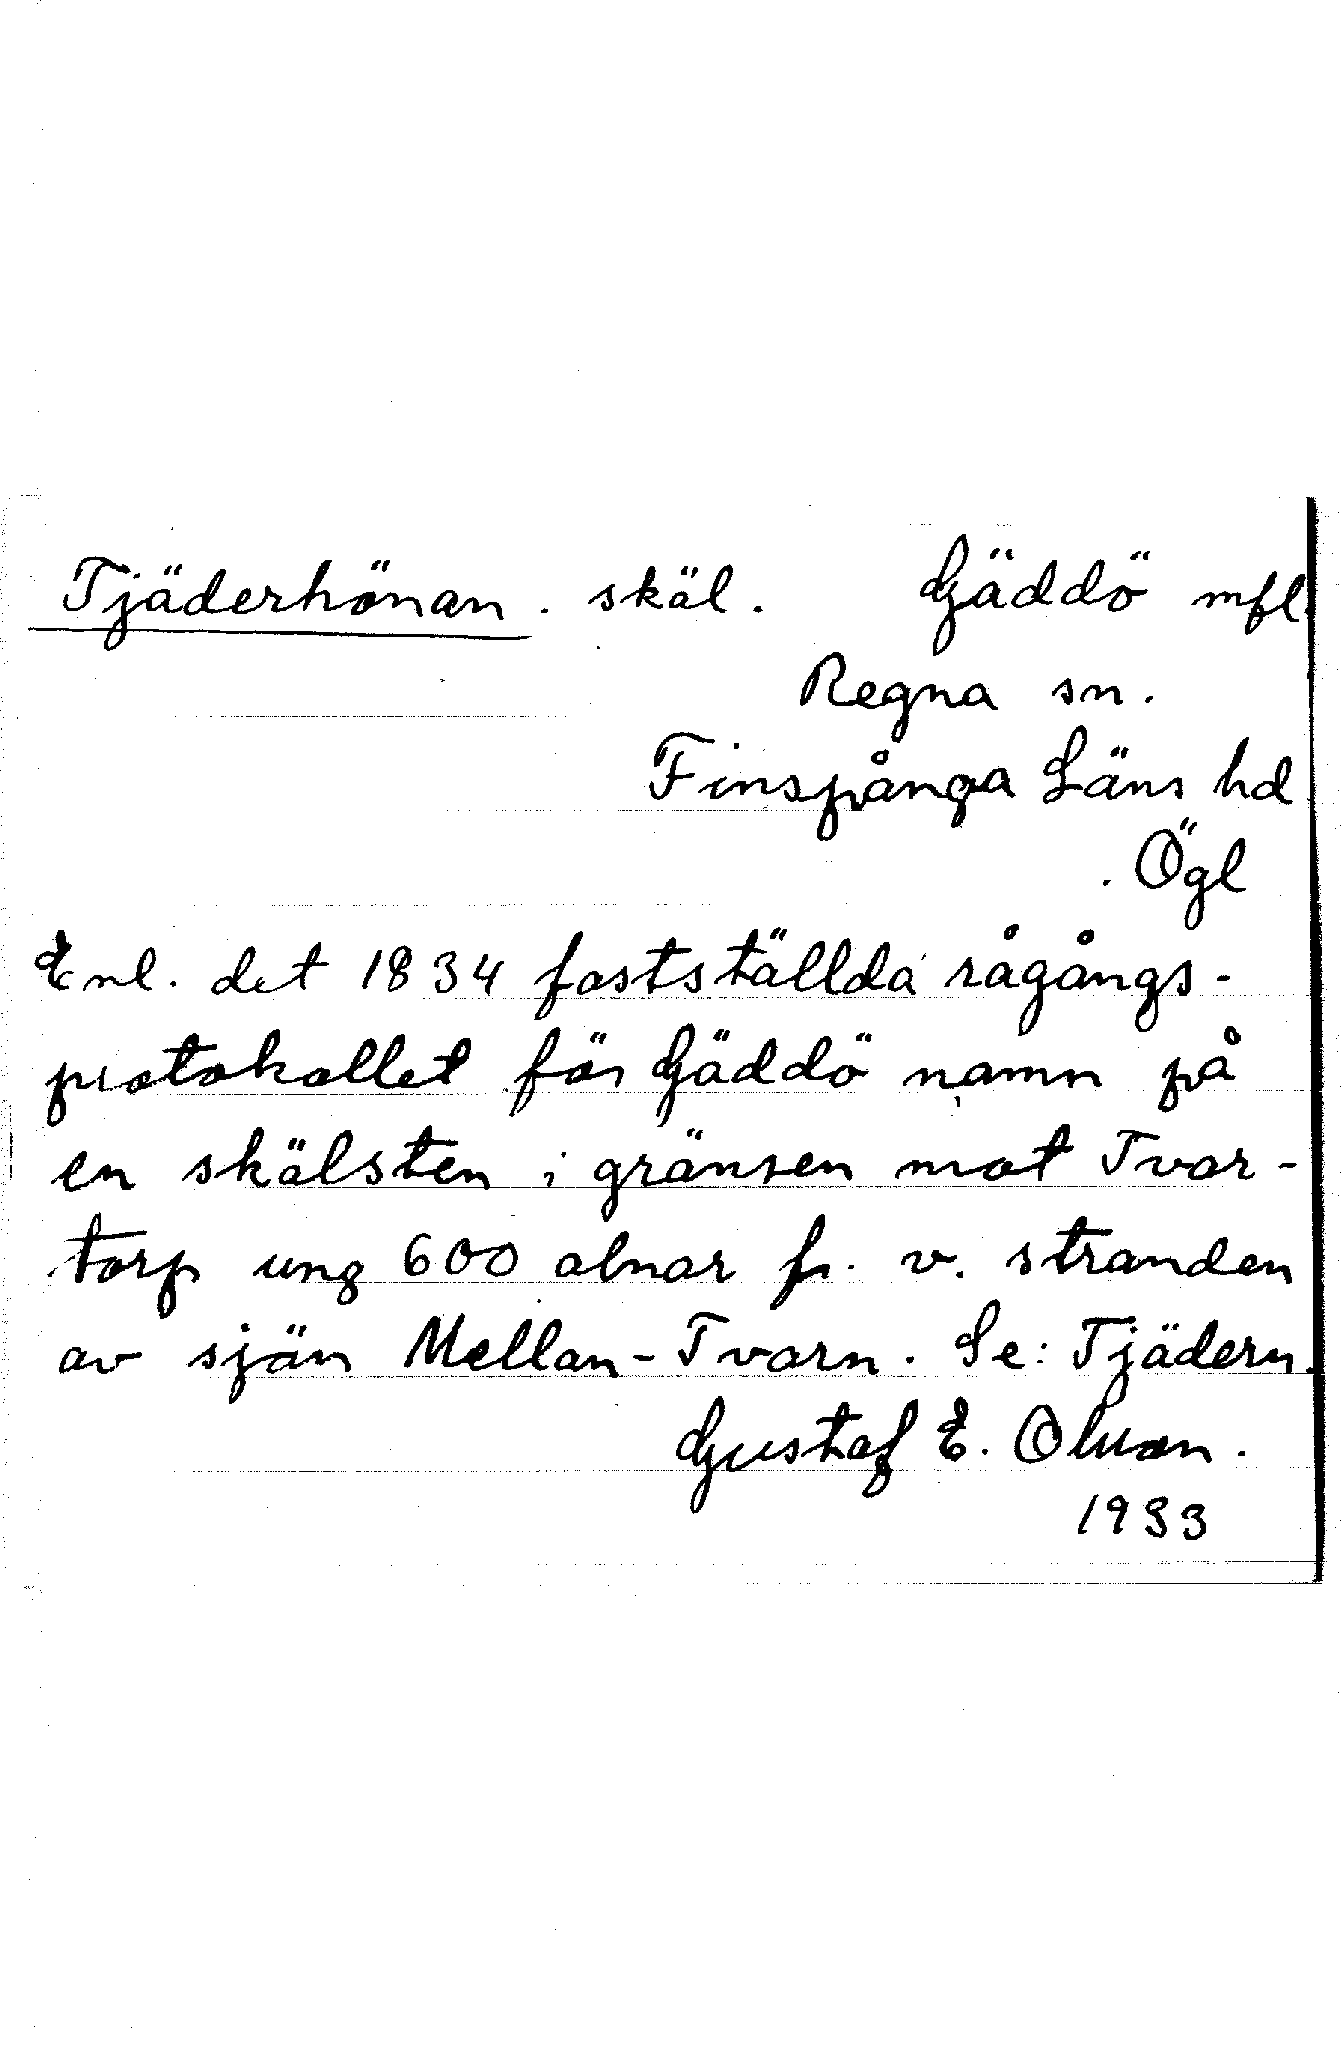 Tjäderhönan. skäl. Gäddö mfl.
Regna sn.
Finspånga Läns hd
Ögl
Enl. det 1834 fastställda rågångs-
protokollet för Gäddö namn på
en skälsten i gränsen mot Tvar-
torp ung 600 alnar fr. v. stranden
av sjön Mellan-Tvarn. Se: Tjädern.
Gustaf E. Olsson.
1933